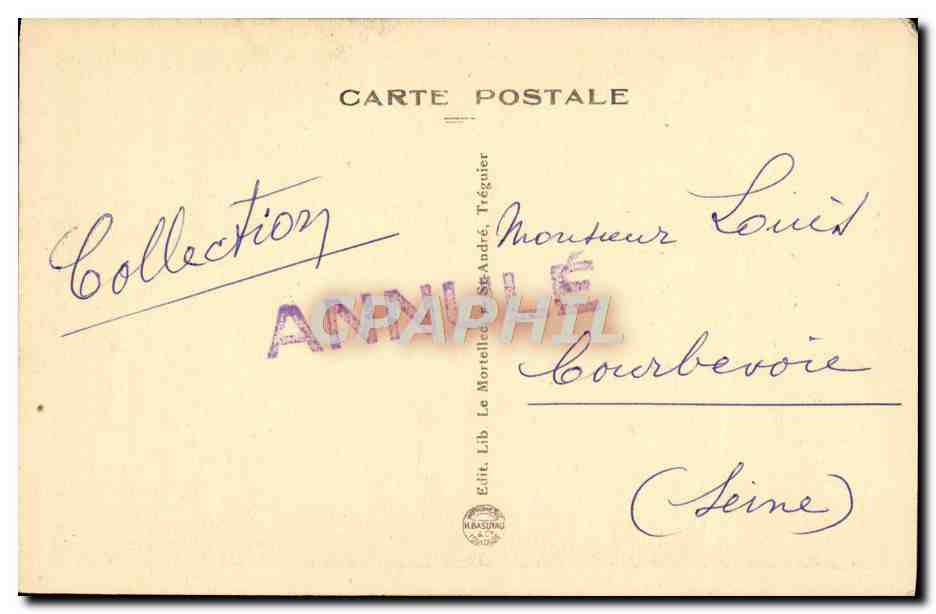 CARTE POSTALE
Collection
ANNULÉ
CPAPHIL
Edit. Lib Le Mortellec St-André, Tréguier
Monsieur Louis
Courbevoie
(Seine)
H. BASUYAU
& Cie
TOULOUSE